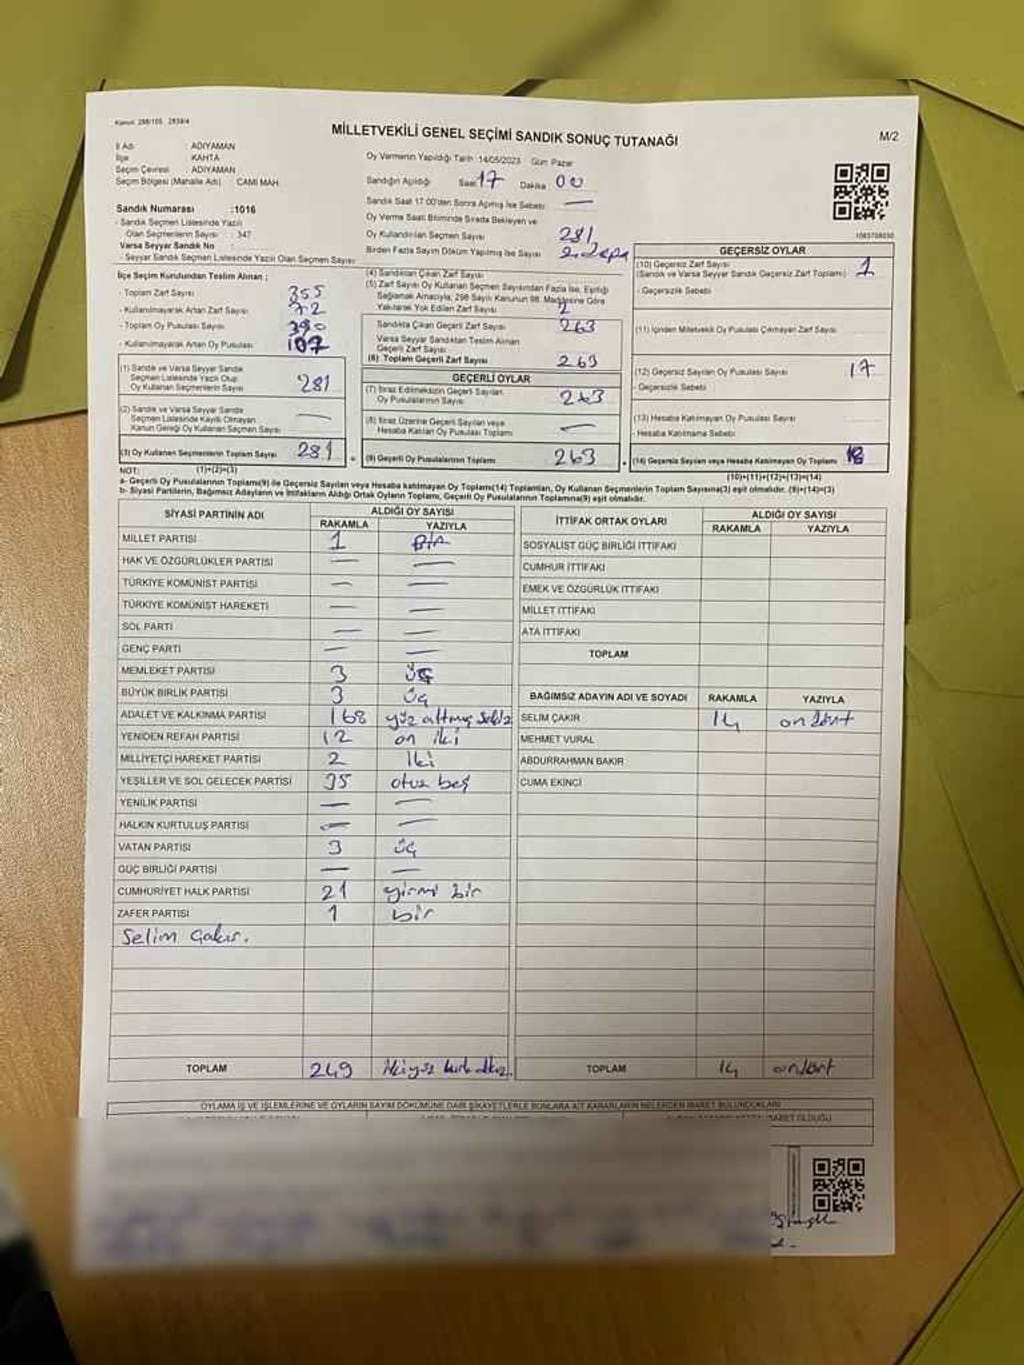 Kanun: 298/105 2839/4
MİLLETVEKİLİ GENEL SEÇİMİ SANDIK SONUÇ TUTANAĞI
M/2
İl Adı : ADIYAMAN
İlçe : KAHTA
Seçim Çevresi : ADIYAMAN
Seçim Bölgesi (Mahalle Adı) : CAMİ MAH.
Oy Vermenin Yapıldığı Tarih :14/05/2023 Gün Pazar
Sandığın Açıldığı Saat 17 Dakika 00
Sandık Saat 17:00'den Sonra Açılmış İse Sebebi: —
Oy Verme Saati Bitiminde Sırada Bekleyen ve
Oy Kullandırılan Seçmen Sayısı 281
Birden Fazla Sayım Döküm Yapılmış İse Sayısı
Sandık Numarası :1016
- Sandık Seçmen Listesinde Yazılı
Olan Seçmenlerin Sayısı : 347
Varsa Seyyar Sandık No :
- Seyyar Sandık Seçmen Listesinde Yazılı Olan Seçmen Sayısı:
İlçe Seçim Kurulundan Teslim Alınan ;
- Toplam Zarf Sayısı : 355
- Kullanılmayarak Artan Zarf Sayısı : 72
- Toplam Oy Pusulası Sayısı : 390
- Kullanılmayarak Artan Oy Pusulası : 107
(1) Sandık ve Varsa Seyyar Sandık
Seçmen Listesinde Yazılı Olup
Oy Kullanan Seçmenlerin Sayısı 281
(2) Sandık ve Varsa Seyyar Sandık
Seçmen Listesinde Kayıtlı Olmayan
Kanun Gereği Oy Kullanan Seçmen Sayısı: —
(3) Oy Kullanan Seçmenlerin Toplam Sayısı 281
(1)+(2)=(3)
(4) Sandıktan Çıkan Zarf Sayısı
(5) Zarf Sayısı Oy Kullanan Seçmen Sayısından Fazla İse, Eşitliği
Sağlamak Amacıyla, 298 Sayılı Kanunun 98. Maddesine Göre
Yakılarak Yok Edilen Zarf Sayısı 2
Sandıkta Çıkan Geçerli Zarf Sayısı 263
Varsa Seyyar Sandıktan Teslim Alınan
Geçerli Zarf Sayısı
(6) Toplam Geçerli Zarf Sayısı 263
GEÇERLİ OYLAR
(7) İtiraz Edilmeksizin Geçerli Sayılan
Oy Pusulalarının Sayısı 263
(8) İtiraz Üzerine Geçerli Sayılan veya
Hesaba Katılan Oy Pusulası Toplamı —
(9) Geçerli Oy Pusulalarının Toplamı 263
1063768030
GEÇERSİZ OYLAR
(10) Geçersiz Zarf Sayısı
(Sandık ve Varsa Seyyar Sandık Geçersiz Zarf Toplamı) 1
- Geçersizlik Sebebi
(11) İçinden Milletvekili Oy Pusulası Çıkmayan Zarf Sayısı
(12) Geçersiz Sayılan Oy Pusulası Sayısı 17
- Geçersizlik Sebebi
(13) Hesaba Katılmayan Oy Pusulası Sayısı
- Hesaba Katılmama Sebebi
(14) Geçersiz Sayılan veya Hesaba Katılmayan Oy Toplamı 18
(10)+(11)+(12)+(13)=(14)
NOT:
a- Geçerli Oy Pusulalarının Toplamı(9) ile Geçersiz Sayılan veya Hesaba Katılmayan Oy Toplamı(14) Toplamları, Oy Kullanan Seçmenlerin Toplam Sayısına(3) eşit olmalıdır. (9)+(14)=(3)
b- Siyasi Partilerin, Bağımsız Adayların ve İttifakların Aldığı Ortak Oyların Toplamı, Geçerli Oy Pusulalarının Toplamına(9) eşit olmalıdır.
SİYASİ PARTİNİN ADI ALDIĞI OY SAYISI
RAKAMLA YAZIYLA
MİLLET PARTİSİ 1 Bir
HAK VE ÖZGÜRLÜKLER PARTİSİ — —
TÜRKİYE KOMÜNİST PARTİSİ — —
TÜRKİYE KOMÜNİST HAREKETİ — —
SOL PARTİ — —
GENÇ PARTİ — —
MEMLEKET PARTİSİ 3 üç
BÜYÜK BİRLİK PARTİSİ 3 üç
ADALET VE KALKINMA PARTİSİ 168 yüz altmış sekiz
YENİDEN REFAH PARTİSİ 12 on iki
MİLLİYETÇİ HAREKET PARTİSİ 2 İki
YEŞİLLER VE SOL GELECEK PARTİSİ 35 otuz beş
YENİLİK PARTİSİ — —
HALKIN KURTULUŞ PARTİSİ — —
VATAN PARTİSİ 3 üç
GÜÇ BİRLİĞİ PARTİSİ — —
CUMHURİYET HALK PARTİSİ 21 yirmi bir
ZAFER PARTİSİ 1 bir
Selim Çakır.
TOPLAM 249 ikiyüz kırk dokuz.
İTTİFAK ORTAK OYLARI ALDIĞI OY SAYISI
RAKAMLA YAZIYLA
SOSYALİST GÜÇ BİRLİĞİ İTTİFAKI
CUMHUR İTTİFAKI
EMEK VE ÖZGÜRLÜK İTTİFAKI
MİLLET İTTİFAKI
ATA İTTİFAKI
TOPLAM
BAĞIMSIZ ADAYIN ADI VE SOYADI RAKAMLA YAZIYLA
SELİM ÇAKIR 14 ondört
MEHMET VURAL
ABDURRAHMAN BAKIR
CUMA EKİNCİ
TOPLAM 14 ondört
OYLAMA İŞ VE İŞLEMLERİNE VE OYLARIN SAYIM DÖKÜMÜNE DAİR ŞİKAYETLERLE BUNLARA AİT KARARLARIN NELERDEN İBARET BULUNDUKLARI